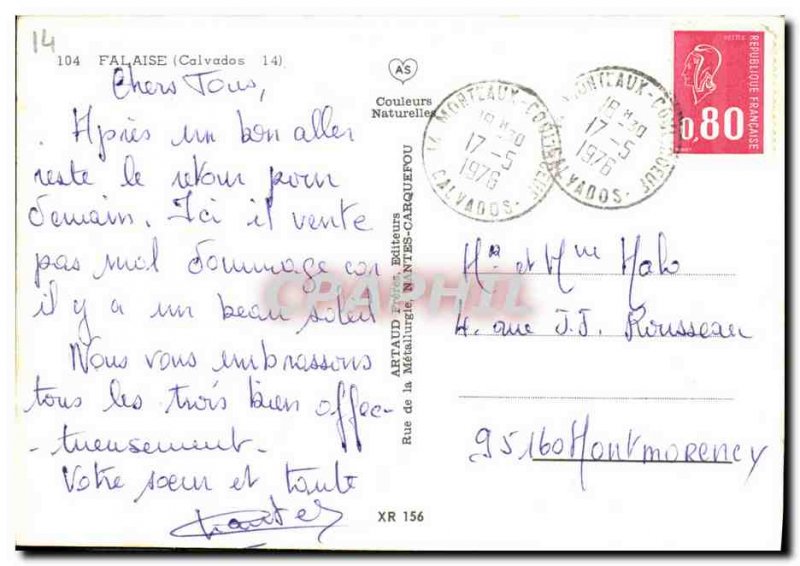 14
104 FALAISE (Calvados 14)
Chers Tous,
Après un bon aller
reste le retour pour
demain. Ici il vente
pas mal dommage car
il y a un beau soleil
Nous vous embrassons
tous les trois bien affec-
-tueusement.
Votre sœur et tante
AS
Couleurs
Naturelles
ARTAUD Frères, Editeurs
Rue de la Métallurgie, NANTES-CARQUEFOU
XR 156
14 MORTEAUX-COULIBOEUF
18 H 30
17-5
1976
CALVADOS
MORTEAUX-COULIBOEUF
18 H 30
17-5
1976
CALVADOS
REPUBLIQUE FRANÇAISE
0,80
Mr et Mme
4. rue J.J. Rousseau
95160 Montmorency
CPAPHIL